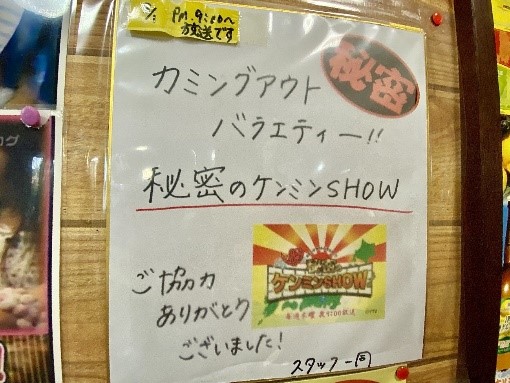 PM 9:00〜
放送です
秘密
カミングアウト
バラエティー!!
秘密のケンミンSHOW
ケンミンSHOW
毎週木曜 夜9:00放送
ご協力
ありがとう
ございました!
スタッフ一同